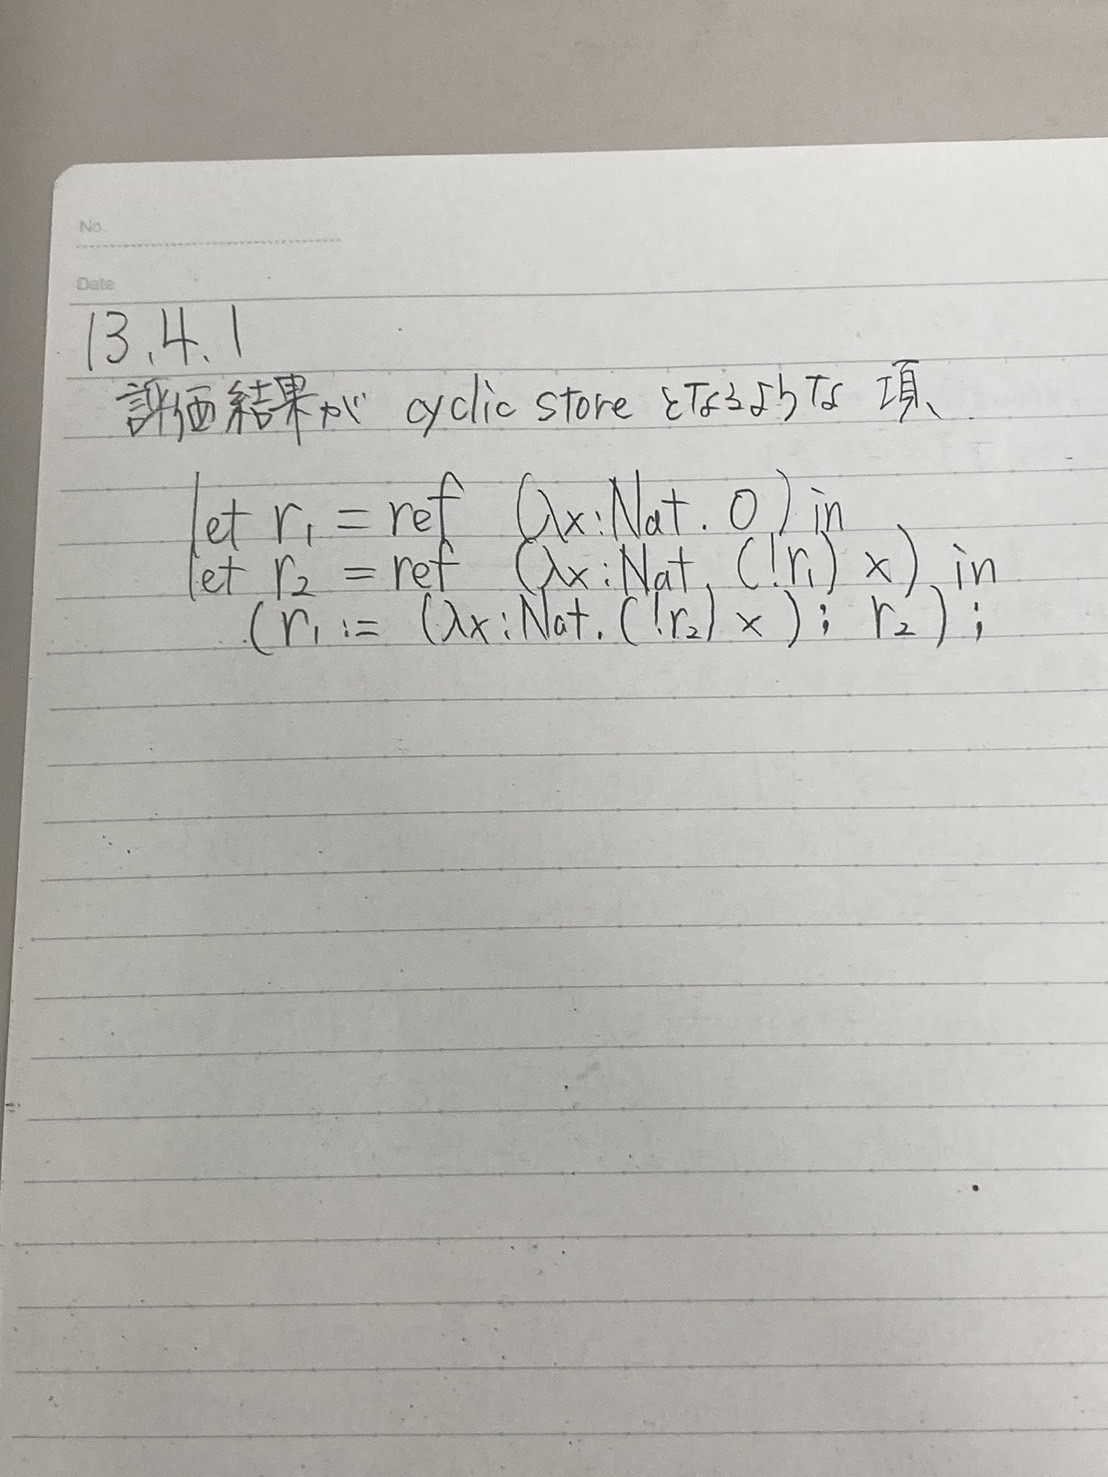 No.
Date
13.4.1
評価結果が cyclic store となるような 項、
let r₁ = ref (λx:Nat. 0) in
let r₂ = ref (λx:Nat. (!r₁) x) in
(r₁ := (λx:Nat. (!r₂) x); r₂);